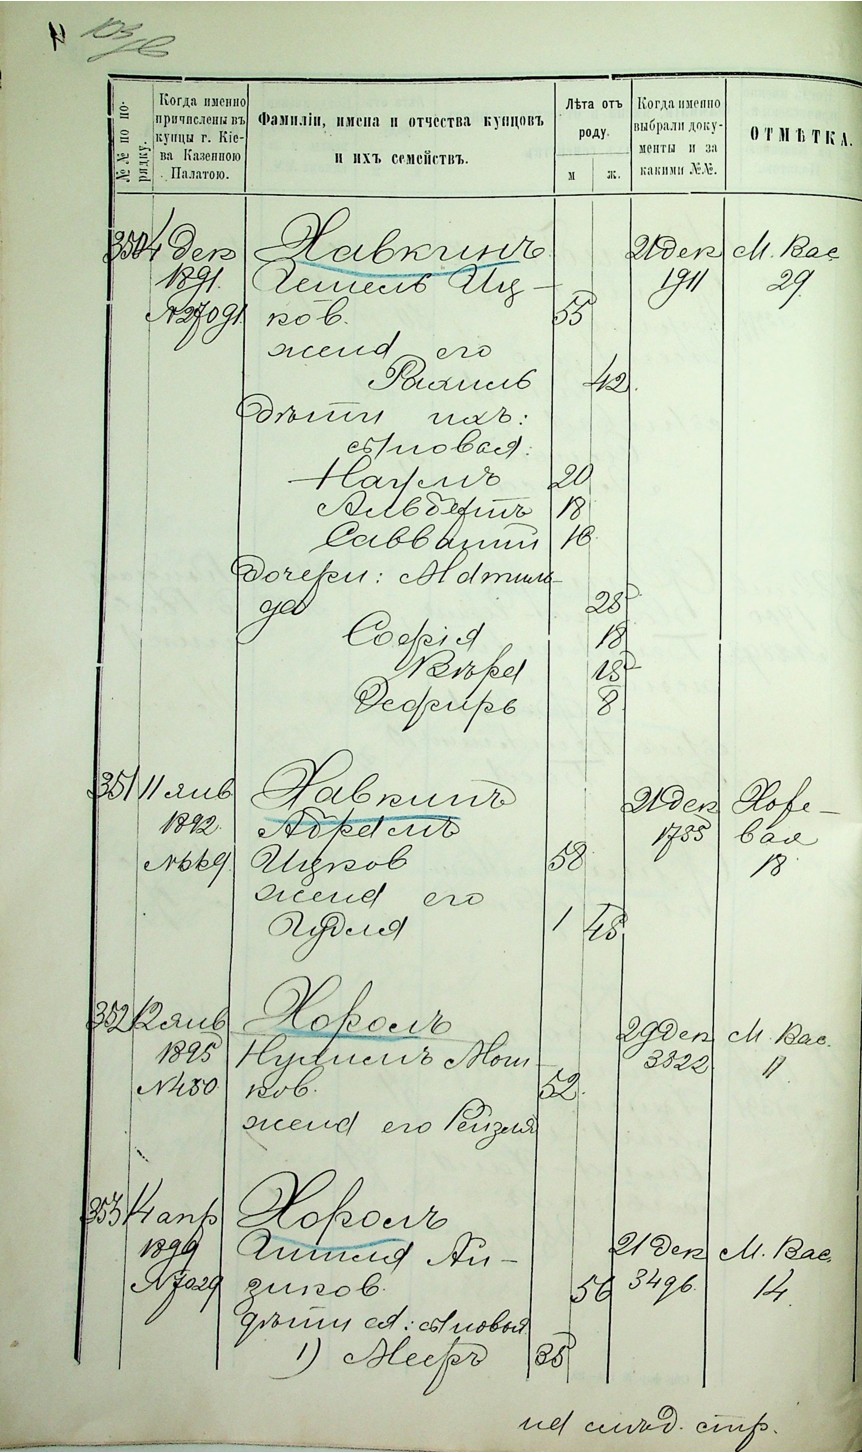 №№ по порядку.
Когда именно причислены въ купцы г. Кіева Казенною Палатою.
Фамиліи, имена и отчества купцовъ и ихъ семействъ.
Лѣта отъ роду.
м
ж.
Когда именно выбрали документы и за какими №№.
ОТМѢТКА.
350 4 дек Хавкинъ 21 дек М. Вас
1891 Гешель Иц- 1911 29
№27091 ков. 55
жена его
Рахиль 42
Дѣти ихъ:
сыновья:
Наумъ 20
Альбертъ 18
Савватій 16
дочери: Матиль-
да 25
Софія 18
Вѣра 15
Дефиръ 8
351 11 янв Хавкинъ 21 дек Хоре-
1892 Абрамъ 1755 вая
№669 Ицков 58 18
жена его
Гудля 1 45
352 12 янв Хоролъ 29 дек М. Вас.
1895 Нухимъ Мош- 3522 11
№450 ков. 52
жена его Рейзля
353 14 апр Хоролъ
1899 Гитля Ай- 21 дек М. Вас.
№7029 зиков. 56 3496 14
дѣти ея: сыновья
1) Мееръ 35
на слѣд. стр.